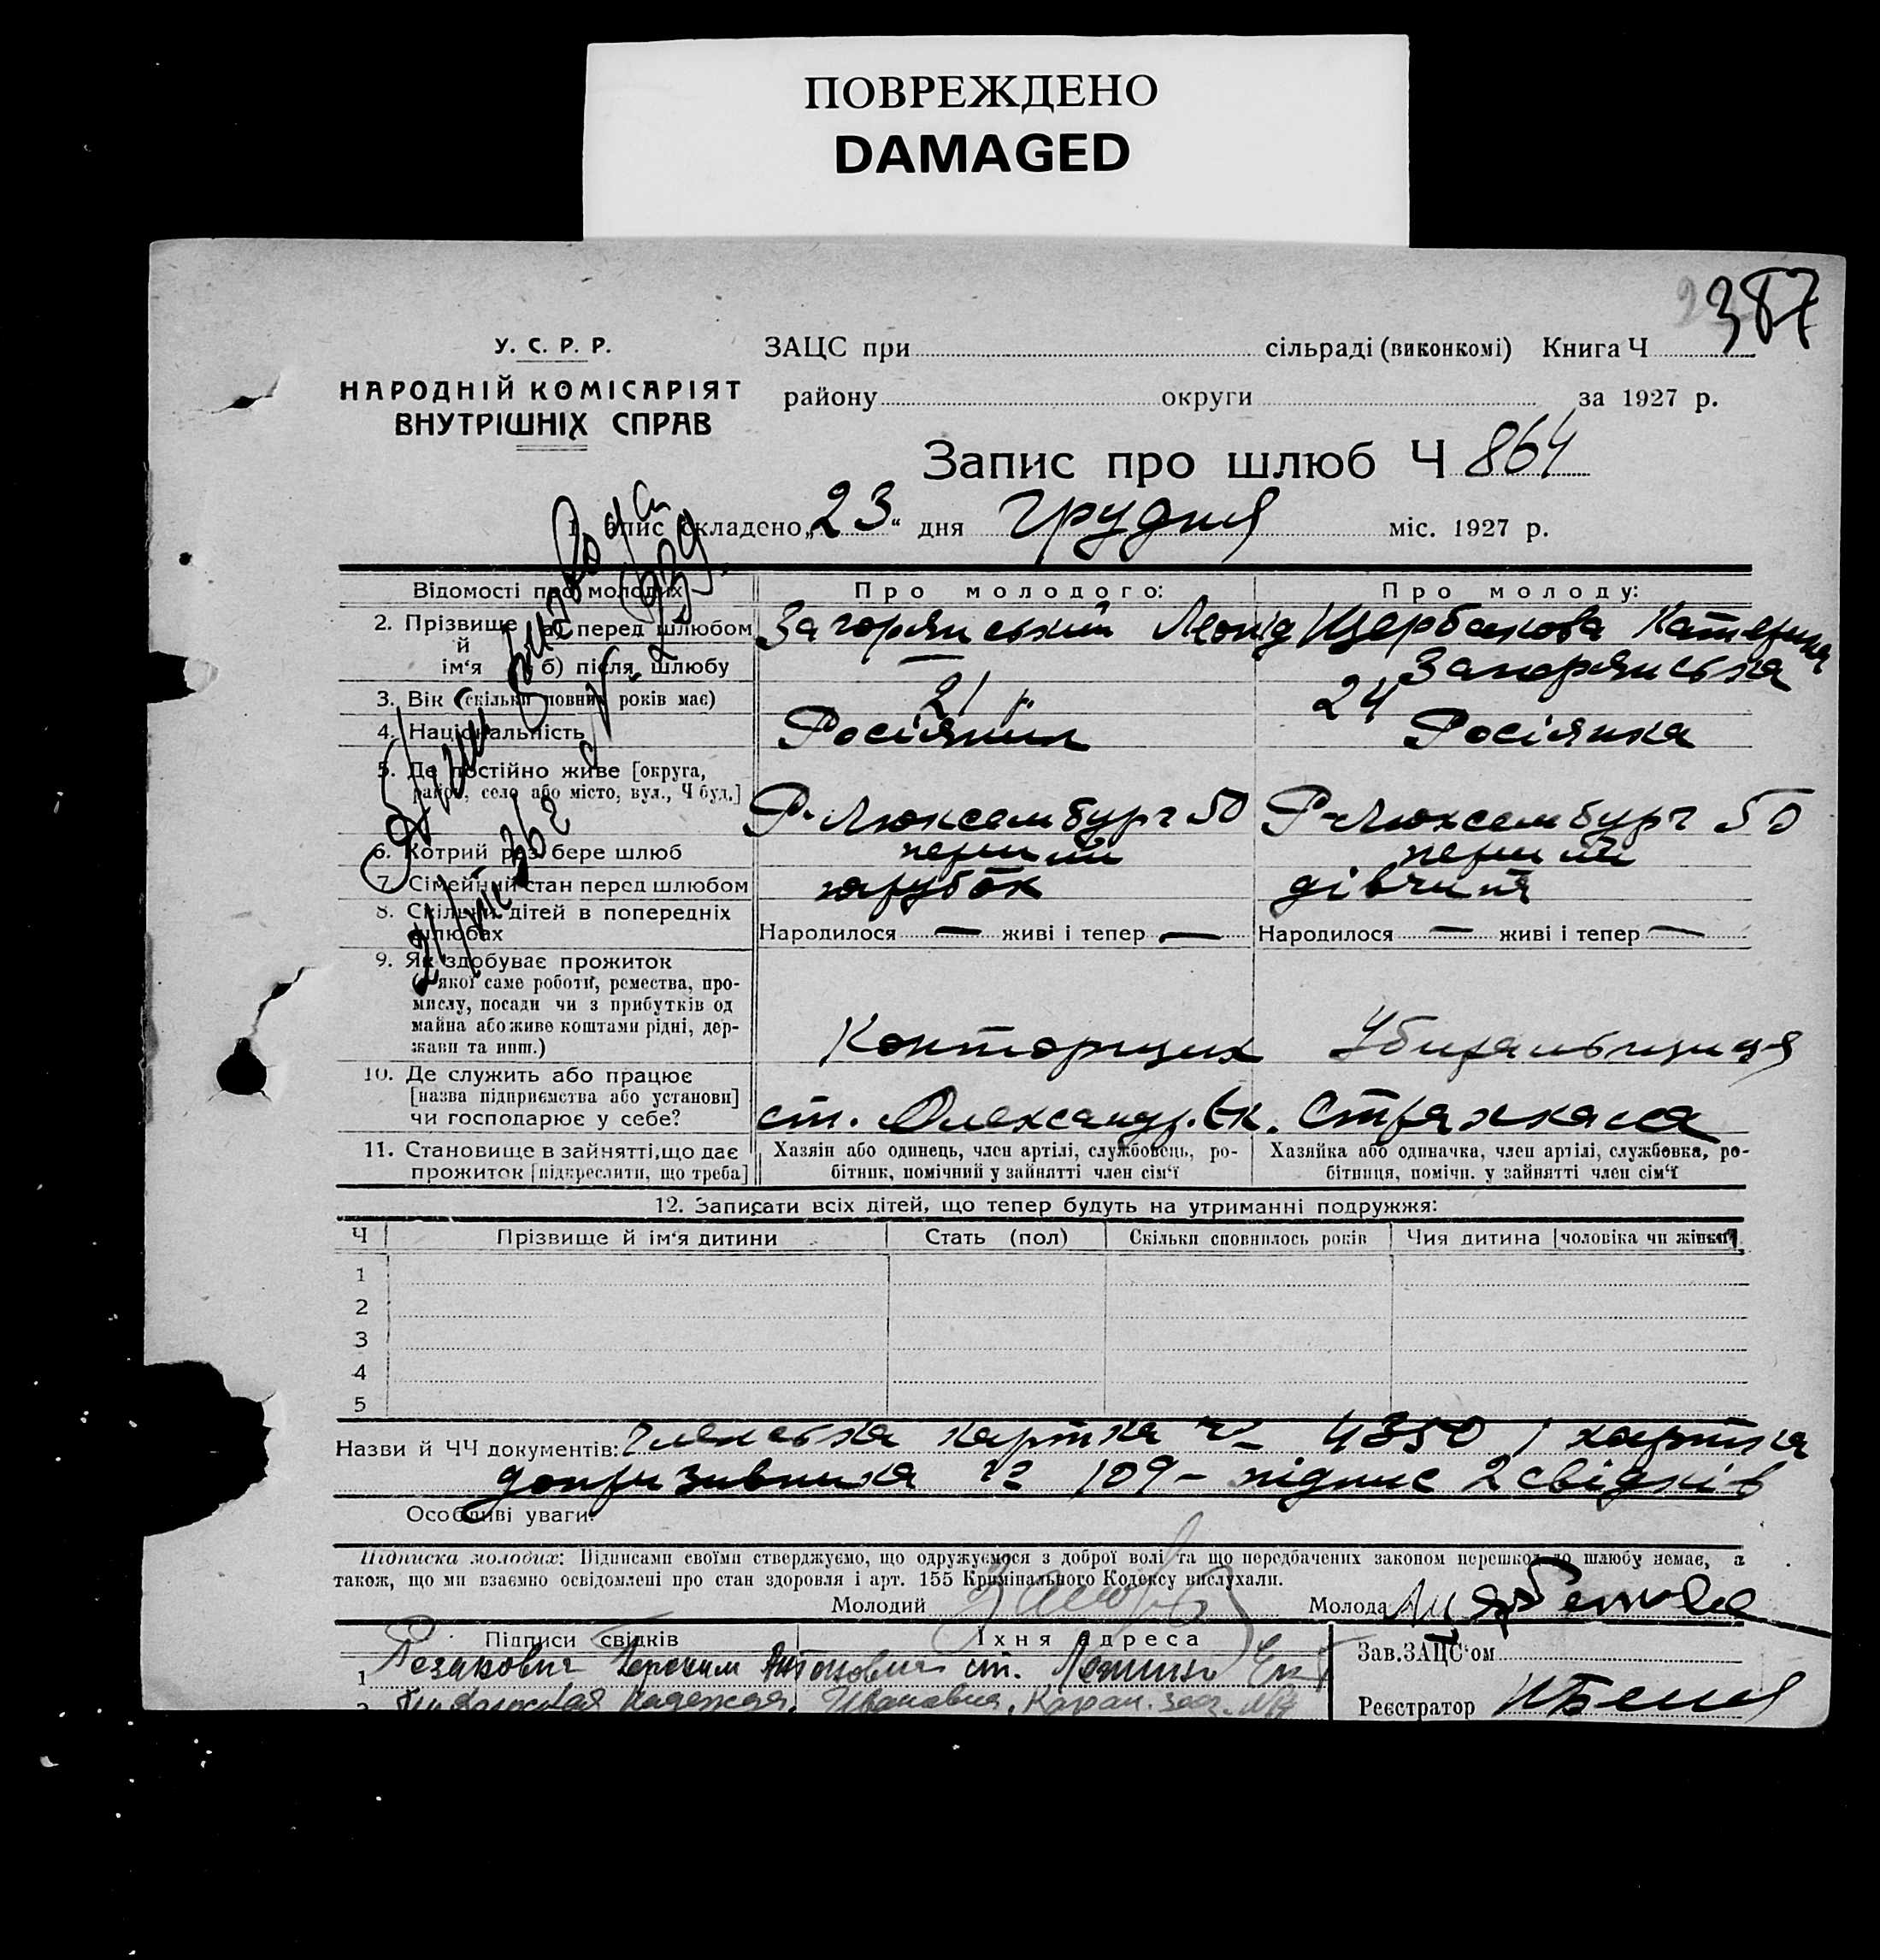 ПОВРЕЖДЕНО
DAMAGED
387
У. С. Р. Р.
НАРОДНІЙ КОМІСАРІЯТ
ВНУТРІШНІХ СПРАВ
ЗАЦС при сільраді (виконкомі) Книга Ч
району округи за 1927 р.
Запис про шлюб Ч 864
1. Запис складено „23“ дня Грудня міс. 1927 р.
Відомості про молодих Про молодого: Про молоду:
2. Прізвище й ім‘я а) перед шлюбом Загорянський Леонід Щербакова Катерина
б) після шлюбу — Загорянська
3. Вік (скільки повних років має) 21 р. 24
4. Національність Росіянин Росіянка
5. Де постійно живе [округа,
район, село або місто, вул., Ч буд.] Р. Люксембург 50 Р-Люксембург 50
6. Котрий раз бере шлюб перший перший
7. Сімейний стан перед шлюбом парубок дівчина
8. Скільки дітей в попередніх
шлюбах Народилося — живі і тепер — Народилося — живі і тепер —
9. Як здобуває прожиток
(з якої саме роботи, ремества, про-
мислу, посади чи з прибутків од
майна або живе коштами рідні, дер-
жави та инш.) Конторщик Убиральщиця
10. Де служить або працює
[назва підприємства або установи]
чи господарює у себе? ст. Олександр. Ек. Страхкаса
11. Становище в зайнятті, що дає
прожиток [підкреслити, що треба]
Хазяін або одинець, член артілі, службовець, ро-
бітник, помічний у зайнятті член сім‘ї
Хазяйка або одиначка, член артілі, службовка, ро-
бітниця, помічн. у зайнятті член сім‘ї
12. Записати всіх дітей, що тепер будуть на утриманні подружжя:
Ч Прізвище й ім‘я дитини Стать (пол) Скільки сповнилось років Чия дитина [чоловіка чи жінки]
1
2
3
4
5
Назви й ЧЧ документів: Членська картка Ч 4350 і картка
допризивника Ч 109 - підпис 2 свідків
Особливі уваги:
Підписка молодих: Підписами своїми стверджуємо, що одружуємося з доброї волі та що передбачених законом перешкод до шлюбу немає, а
також, що ми взаємно освідомлені про стан здоровля і арт. 155 Кримінального Кодексу вислухали.
Молодий Молода Щербакова
Підписи свідків Їхня адреса
1 Антонович ст.
2 Надежда Ивановна,
Зав. ЗАЦС‘ом
Реєстратор